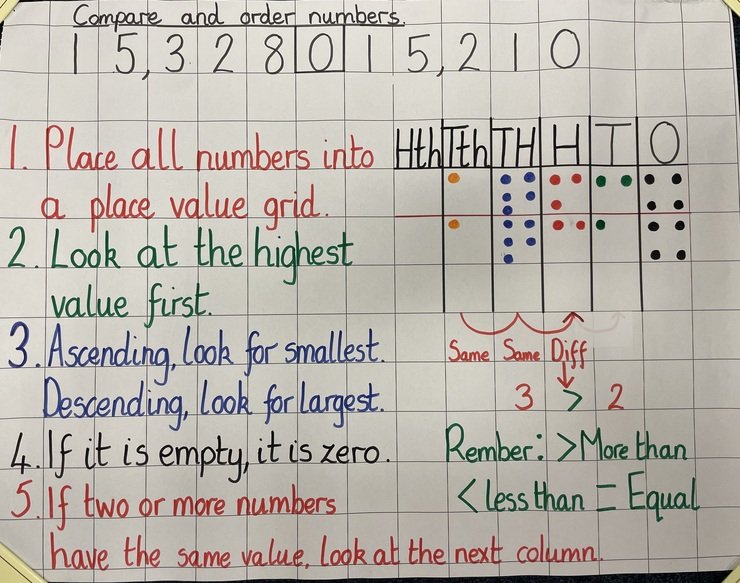 Compare and order numbers.
1 5,3 2 8 0 1 5,2 1 0
1. Place all numbers into
a place value grid.
2. Look at the highest
value first.
3. Ascending, look for smallest.
Descending, look for largest.
4. If it is empty, it is zero.
5. If two or more numbers
have the same value, look at the next column.
Hth Tth TH H T O
Same Same Diff
3 > 2
Rember: > More than
< less than = Equal